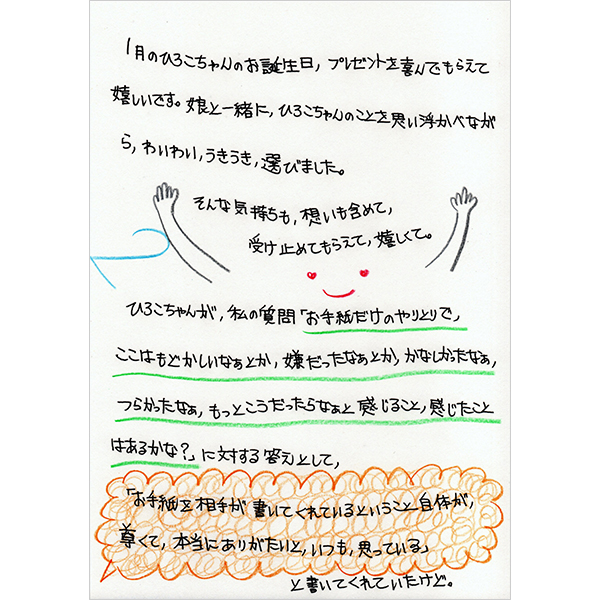 1月のひろこちゃんのお誕生日，プレゼントを喜んでもらえて
嬉しいです。娘と一緒に，ひろこちゃんのことを思い浮かべなが
ら，わいわい，うきうき，選びました。
そんな気持ちも，想いも含めて，
受け止めてもらえて，嬉しくて。
ひろこちゃんが，私の質問「お手紙だけのやりとりで，
ここはもどかしいなぁとか，嫌だったなぁとか，かなしかったなぁ，
つらかったなぁ，もっとこうだったらなぁと感じること，感じたこと
はあるかな？」に対する答えとして，
「お手紙を相手が書いてくれているということ自体が，
尊くて，本当にありがたいと，いつも，思っている」
と書いてくれていたけど。